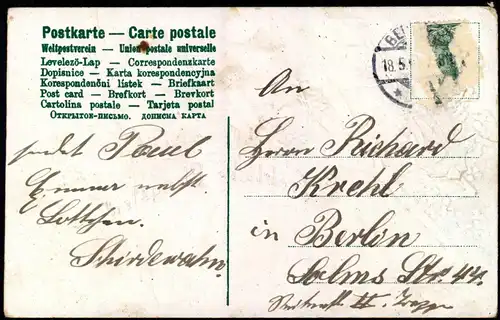 Postkarte — Carte postale
Weltpostverein — Union postale universelle
Levelező-Lap — Correspondenzkarte
Dopisnice — Karta korespondencyjna
Korespondenční lístek — Briefkaart
Post card — Brefkort — Brevkort
Cartolina postale — Tarjeta postal
Открытое-письмо. дописна карта
18.5.
An
Herrn Richard
Krehl
in Berlin
Solms Str. 44
sendet Paul
nebst
Lottchen.